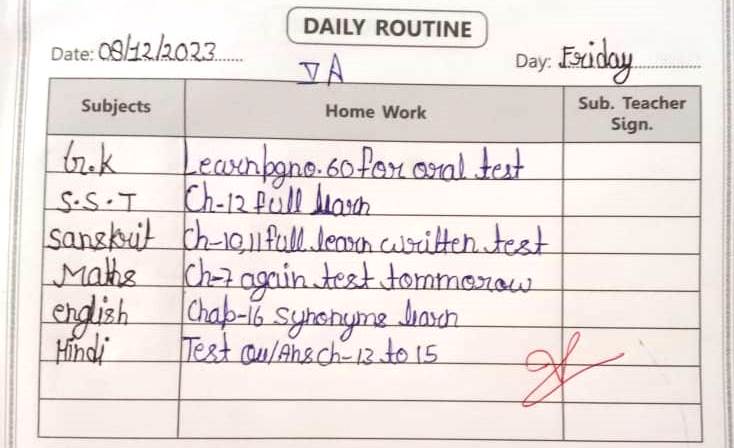 DAILY ROUTINE
Date: 08/12/2023......
V A
Day: Friday
Subjects Home Work Sub. Teacher Sign.
G.K Learn pgno.60 for oral test
S.S.T Ch-12 full learn
sanskrit Ch-10,11 full learn written test
Maths Ch-7 again test tommorow
english Chap-16 synonyms learn
Hindi Test Qu/Ans ch-13 to 15